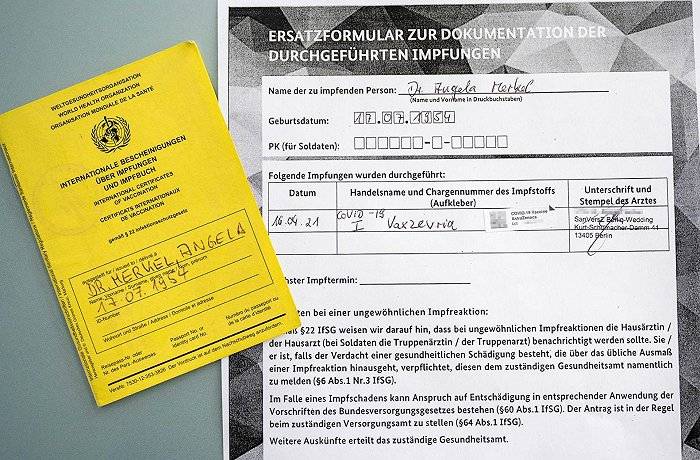 WELTGESUNDHEITSORGANISATION
WORLD HEALTH ORGANIZATION
ORGANISATION MONDIALE DE LA SANTÉ
INTERNATIONALE BESCHEINIGUNGEN
ÜBER IMPFUNGEN
UND IMPFBUCH
INTERNATIONAL CERTIFICATES
OF VACCINATION
CERTIFICATS INTERNATIONAUX
DE VACCINATION
gemäß § 22 Infektionsschutzgesetz
ausgestellt für / issued to / délivré à
DR. MERKEL, ANGELA
17.07.1954
ID-Number
Wohnort und Straße / Address / Domicile et adresse
Reisepass-Nr. oder
Nr. des Pers.-Ausweises
Passport No. or
identity card No.
Numéro du passeport ou
de la carte d'identité
Der Vordruck ist auf dem Nachdruckweg anzufordern.
ERSATZFORMULAR ZUR DOKUMENTATION DER
DURCHGEFÜHRTEN IMPFUNGEN
Name der zu impfenden Person: Dr. Angela Merkel
(Name und Vorname in Druckbuchstaben)
Geburtsdatum: 17.07.1954
PK (für Soldaten):
Folgende Impfungen wurden durchgeführt:
Datum
Handelsname und Chargennummer des Impfstoffs
(Aufkleber)
Unterschrift und
Stempel des Arztes
16.04.21
COVID-19
I
Vaxzevria
COVID-19 Vaccine
AstraZeneca
Berlin-Wedding
Kurt-Schumacher-Damm 41
13405 Berlin
hster Impftermin:
ten bei einer ungewöhnlichen Impfreaktion:
ß §22 IfSG weisen wir darauf hin, dass bei ungewöhnlichen Impfreaktionen die Hausärztin /
der Hausarzt (bei Soldaten die Truppenärztin / der Truppenarzt) benachrichtigt werden sollte. Sie /
er ist, falls der Verdacht einer gesundheitlichen Schädigung besteht, die über das übliche Ausmaß
einer Impfreaktion hinausgeht, verpflichtet, diesen dem zuständigen Gesundheitsamt namentlich
zu melden (§6 Abs.1 Nr.3 IfSG).
Im Falle eines Impfschadens kann Anspruch auf Entschädigung in entsprechender Anwendung der
Vorschriften des Bundesversorgungsgesetzes bestehen (§60 Abs.1 IfSG). Der Antrag ist in der Regel
beim zuständigen Versorgungsamt zu stellen (§64 Abs.1 IfSG).
Weitere Auskünfte erteilt das zuständige Gesundheitsamt.